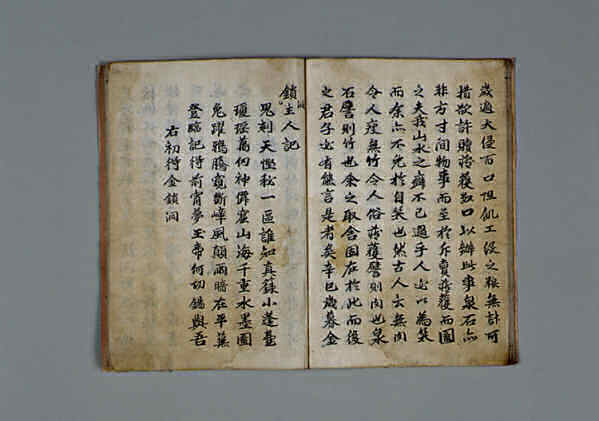 歲適大侵百口阻飢工役之粮無計可
措欲許贖臧獲數口以辦此事泉石亦
非方寸間物事而至於斥賣臧獲而圖
之夫我山水之癖不已過乎人必以為笑
而余亦不免於自笑也然古人云無肉
令人瘦無竹令人俗臧獲譬則肉也泉
石譬則竹也余之取舍固在於此而後
之君子必有能言是者矣辛巳歲暮金
鎖洞主人記
鬼刻天慳秘一區誰知真籙小蓬壺
瓊瑤萬仞神僊窟山海千重水墨圖
兔躍鴉騰寬斷嶂風顛雨暗在平蕪
登臨記得前宵夢玉帝何功錫與吾
右初得金鎖洞